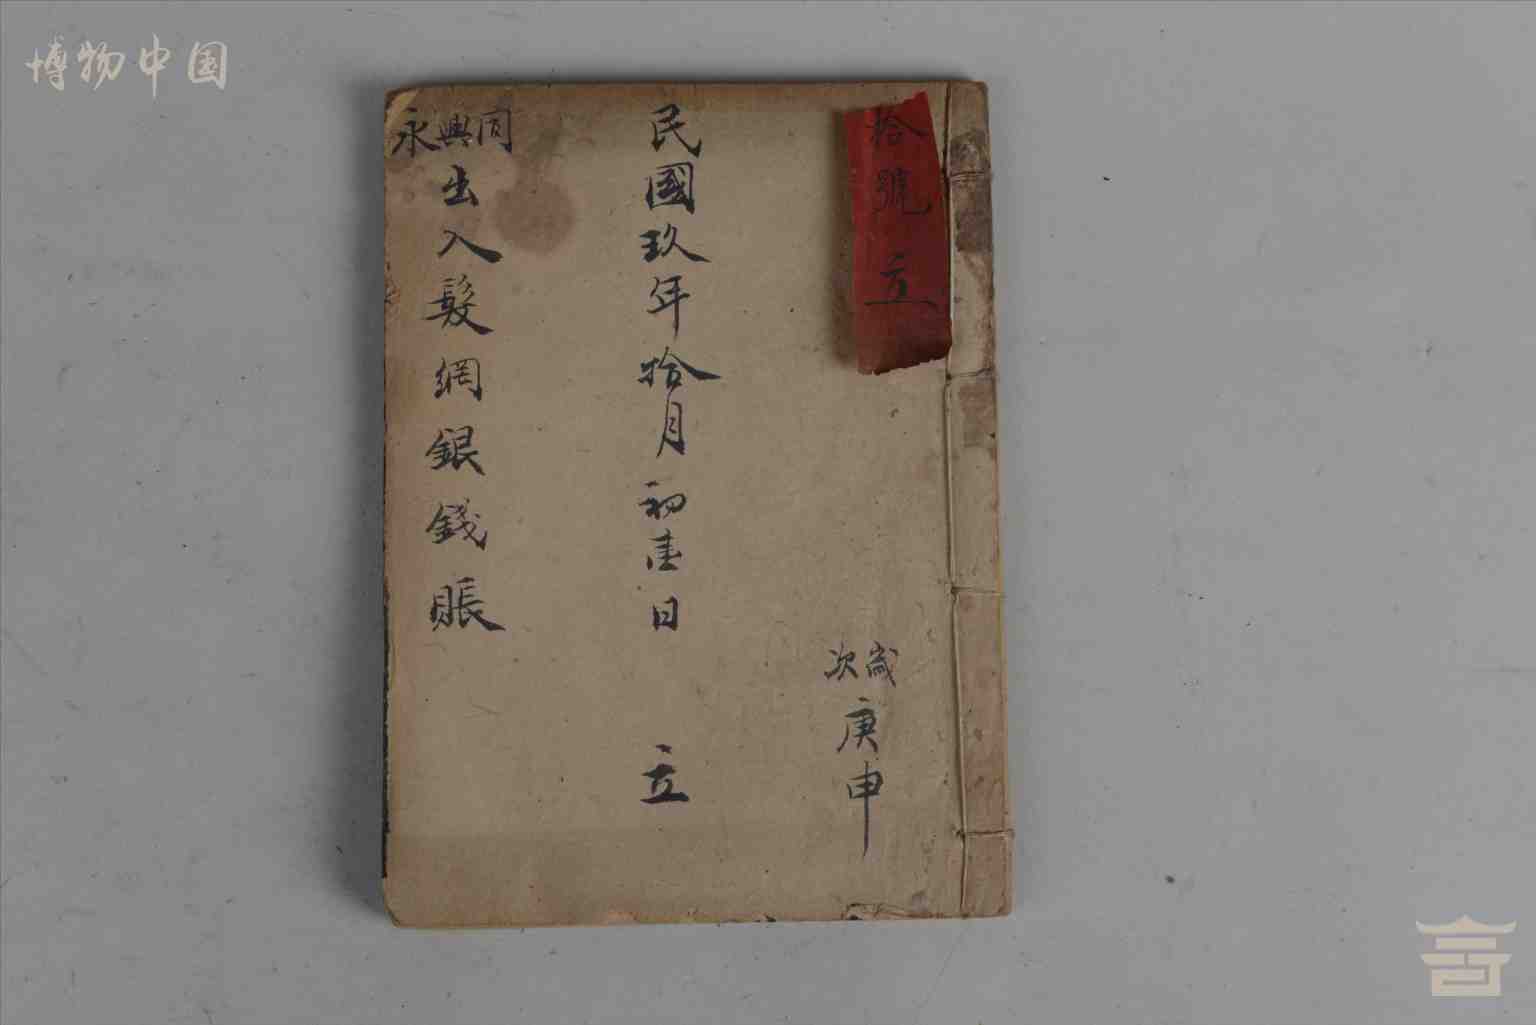 博物中国
拾號立
歲次庚申
民國玖年拾月初壹日立
同興永出入髮網銀錢賬